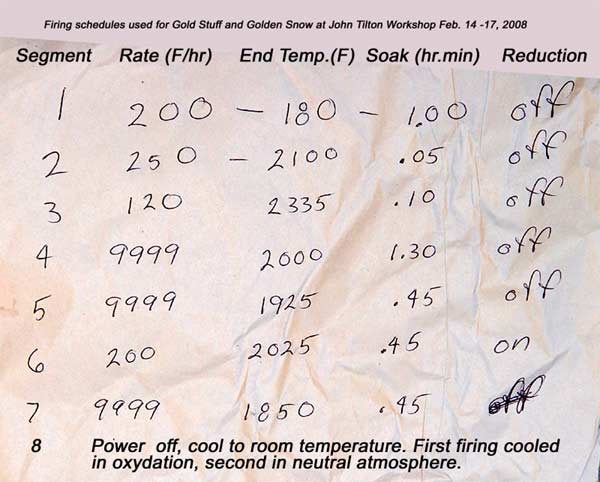 Firing schedules used for Gold Stuff and Golden Snow at John Tilton Workshop Feb. 14 -17, 2008
Segment Rate (F/hr) End Temp.(F) Soak (hr.min) Reduction
1 200 - 180 - 1.00 off
2 250 - 2100 .05 off
3 120 2335 .10 off
4 9999 2000 1.30 off
5 9999 1925 .45 off
6 200 2025 .45 on
7 9999 1850 .45 off
8 Power off, cool to room temperature. First firing cooled
in oxydation, second in neutral atmosphere.